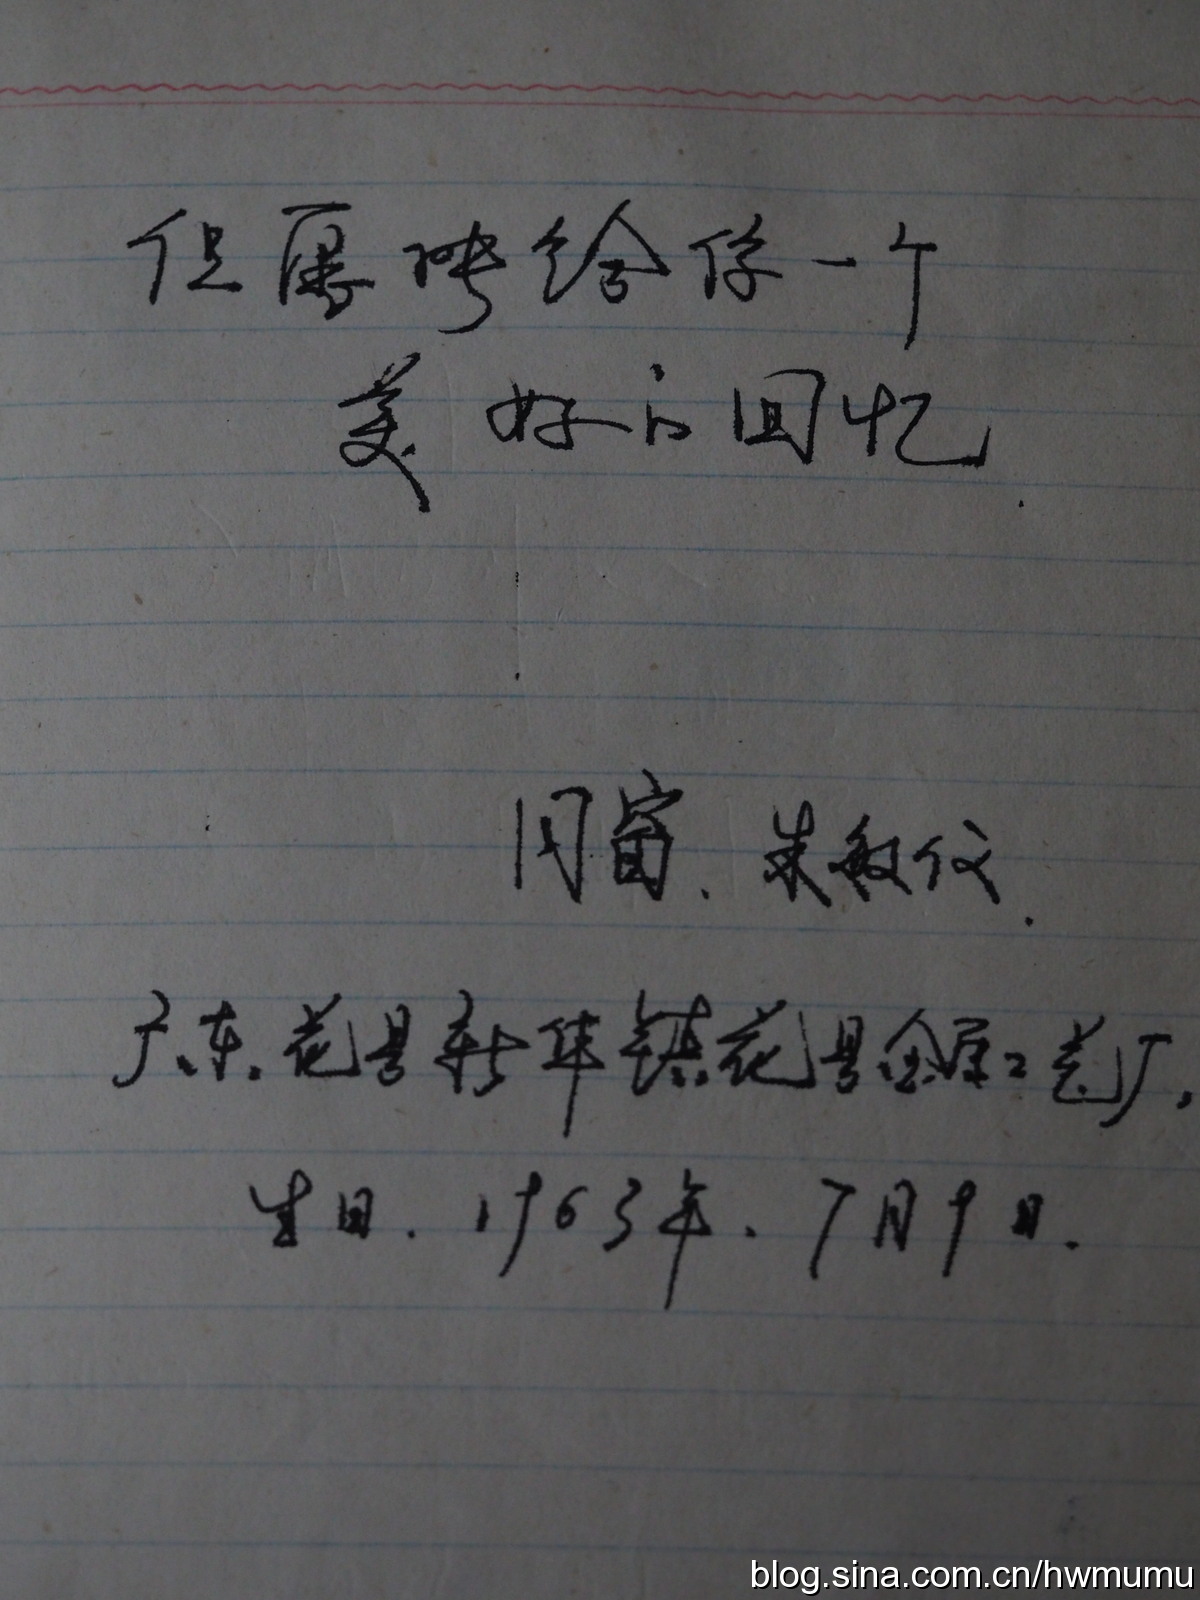 但愿能给你一个
美好的回忆.
同窗. 朱敏仪.
广东.花县新华镇花县金属工艺厂.
生日. 1963年. 7月9日.
blog.sina.com.cn/hwmumu